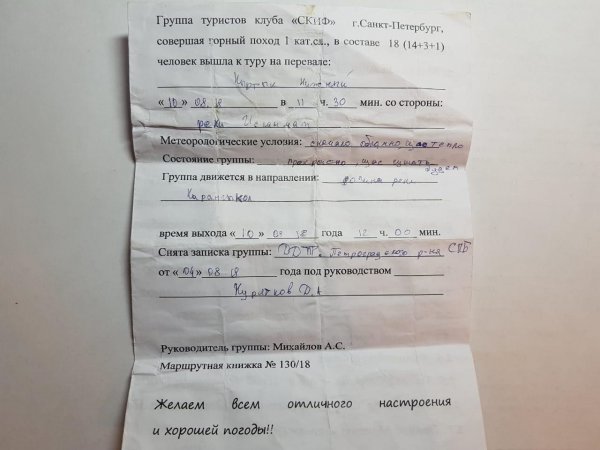 Группа туристов клуба «СКИФ» г.Санкт-Петербург,
совершая горный поход 1 кат.сл., в составе 18 (14+3+1)
человек вышла к туру на перевале:
« 10 » 08.18 в 11 ч. 30 мин. со стороны:
реки
Метеорологические условия: облачно тепло
Состояние группы: прекрасно, щас кушать
будем
Группа движется в направлении: долина реки
время выхода « 10 » 08 18 года 12 ч. 00 мин.
Снята записка группы: Петроградского р-на СПБ
от « 04 » 08.18 года под руководством
Д.А
Руководитель группы: Михайлов А.С.
Маршрутная книжка № 130/18
Желаем всем отличного настроения
и хорошей погоды!!